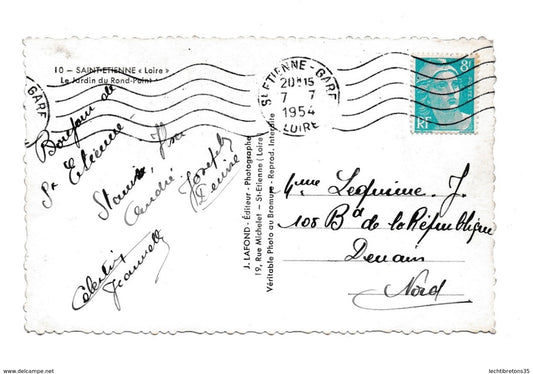 10 – SAINT-ETIENNE « Loire »
Le Jardin du Rond-Point
ST ETIENNE - GARE
20H15
7 7
1954
LOIRE
GARE
8F
RF
Bonjour de
St Etienne
Stanis,
André
Joseph
Denise
Célestin
Jeannette
J. LAFOND - Éditeur - Photographe
19, Rue Michelet - St-Etienne (Loire)
Véritable Photo au Bromure - Reprod. Interdite
Mme Lequime. J.
108 Bd de la République
Denain
Nord
www.delcampe.net
lechtibretons35